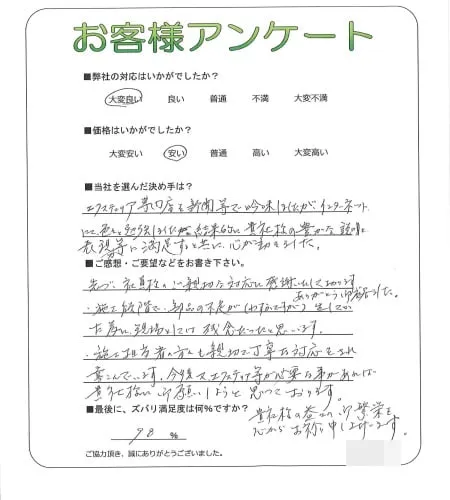 お客様アンケート
■弊社の対応はいかがでしたか？
大変良い 良い 普通 不満 大変不満
■価格はいかがでしたか？
大変安い 安い 普通 高い 大変高い
■当社を選んだ決め手は？
エクステリア専門店を新聞等で吟味しましたがインターネット
にて色々勉強しました結果的に貴社様の豊かな説明と
表現等に満足すると共に、心が動きました。
■ご感想・ご要望などをお書き下さい。
先づ、社員様の心親切な対応に感謝いたして居ります
ありがとう御座いました。
・施工段階で、部品の不足が（わずかですが）生じてい
た為に、現場としては残念だったと思います。
・施工担当者の方も親切で丁寧な対応をされ
喜こんでいます。今後又、エクステリア等が必要な事があれば
貴社様に御願いしようと思っております。
■最後に、ズバリ満足度は何%ですか？
貴社様の益々の御繁栄を
心からお祈り申し上げます。
98 %
ご協力頂き、誠にありがとうございました。